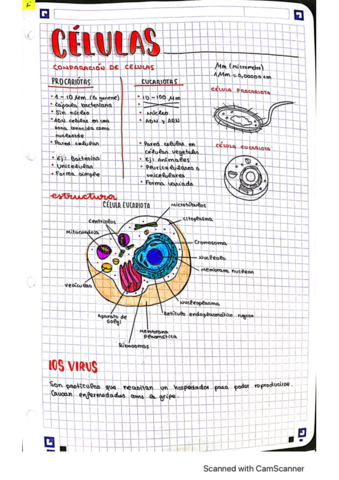 CÉLULAS
COMPARACIÓN DE CÉLULAS
Mm (micrometro)
PROCARIÓTAS
EUCARIÓTAS
CÉLULA PROCARIOTA
• Cápsula bacteriana
• Sin núcleo
• ADN células en una
zona conocida como
nucleoide
• Pared celular
• Ej: Bacterias
• Unicelulares
• Forma simple
• 10 - 100 Mm
• Núcleo
• ADN x ADN
• Pared celular en
células vegetales
• Ej: animales
• Pluricelulares o
unicelulares
• Forma variada
CÉLULA EUCARIOTA
estructura
CÉLULA EUCARIOTA
Microtúbulos
Centriolos
Citoplasma
Mitocondrias
Cromosoma
Nucleolo
Membrana nuclear
Vesículas
Nucleoplasma
Retículo endoplasmático rugoso
Aparato de
Golgi
Membrana
plasmática
Ribosomas
LOS VIRUS
Son partículas que necesitan un hospedador para poder reproducirse.
Causan enfermedades como la gripe.
Scanned with CamScanner